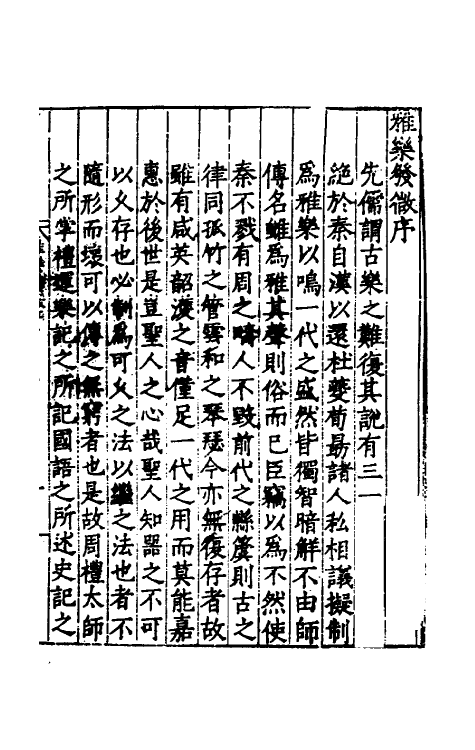 雅樂發微序
先儒謂古樂之難復其說有三一
絶於秦自漢以還杜夔荀勗諸人私相議擬制
爲雅樂以鳴一代之盛然皆獨智暗解不由師
傳名雖爲雅其聲則俗而已臣竊以爲不然使
秦不戮有周之疇人不毀前代之縣簴則古之
律同孤竹之管雲和之琴瑟今亦無復存者故
雖有咸英韶濩之音僅足一代之用而莫能嘉
惠於後世是豈聖人之心哉聖人知器之不可
以久存也必制爲可久之法以繼之法也者不
隨形而壞可以傳之無窮者也是故周禮太師
之所掌禮運樂記之所記國語之所述史記之